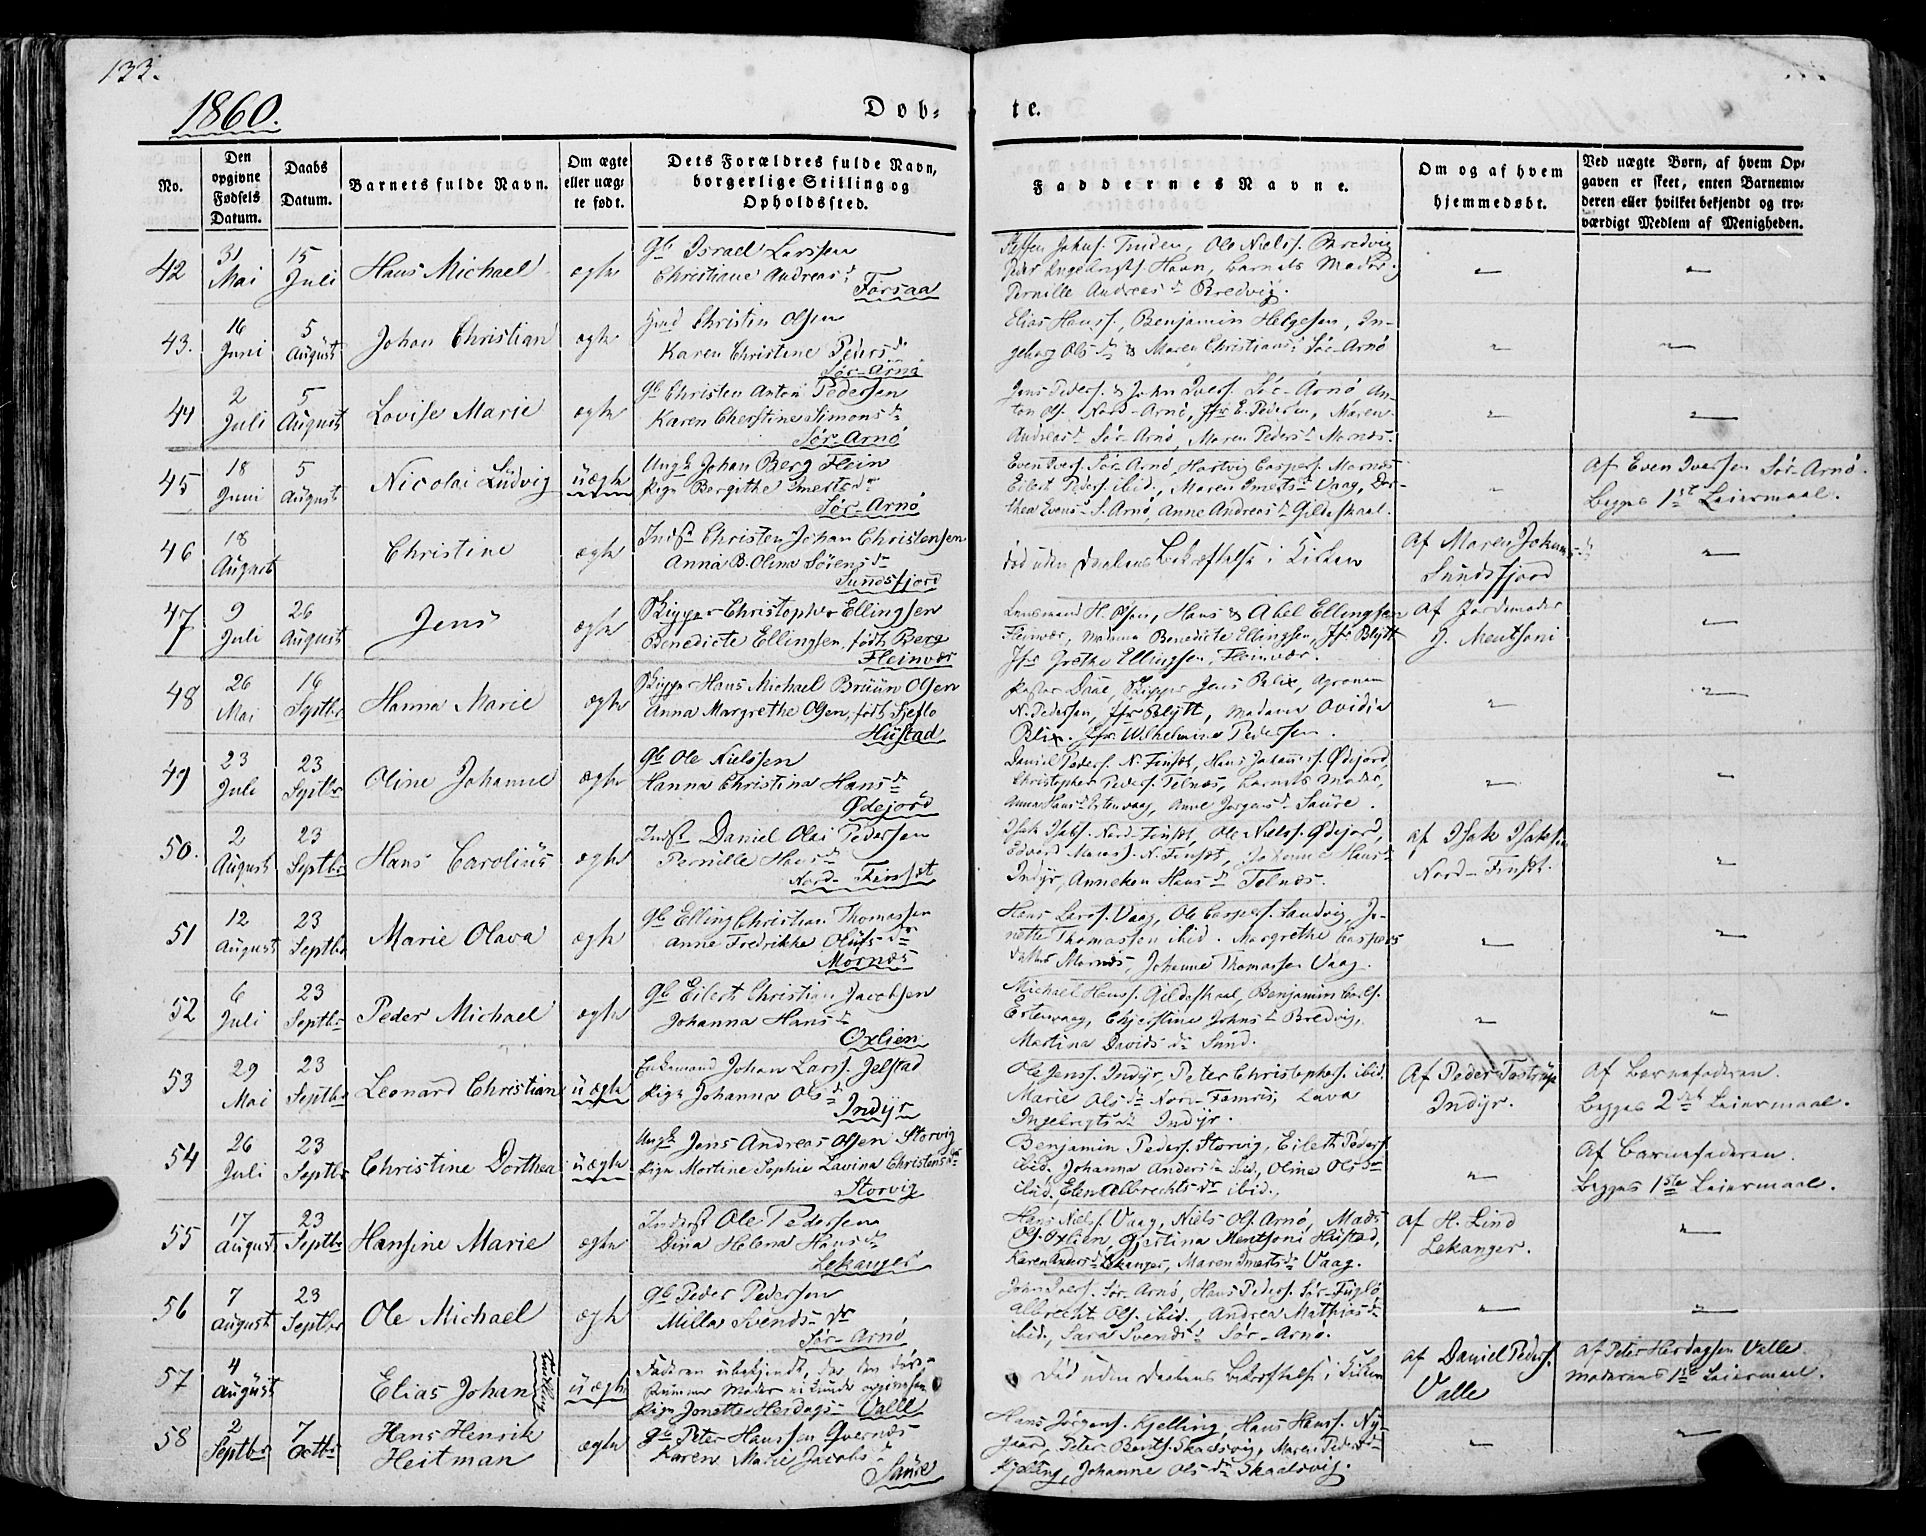 133.
1860.
Dob- te.
No.
Den opgivne Fødsels Datum.
Daabs Datum.
Barnets fulde Navn.
Om ægte eller uægte født.
Dets Forældres fulde Navn, borgerlige Stilling og Opholdssted.
Faddernes Navne.
Om og af hvem hjemmedøbt.
Ved uægte Børn, af hvem Opgaven er skeet, enten Barnemoderen eller hvilket bekjendt og troværdigt Medlem af Menigheden.
42
31 Mai
15 Juli
Hans Michael
ægte
Gb Israel Larssen
Christiane Andreasdr
Forsaa
Ole Nielss. Bredvig
Havn, Barnets Moder
Pernille Andreasdr Bredvig.
43.
16 Juni
5 August
Johan Christian
ægte
Christen Olsen
Karen Christine Pedersdr
Sør-Arnø
Elias Hanss., Benjamin Helgesen, In-
geborg Olsdr & Maren Christians Sør-Arnø
44
2 Juli
5 August
Lovise Marie
ægte
Gb Christen Anton Pedersen
Karen Cherstine Simonsdr
Sør-Arnø
Jens Peders. & John Ivers. Sør-Arnø An-
ton Ols. Nord-Arnø, Jfr E. Pedersen, Maren
Andreasdr Sør-Arnø, Maren Pedersdr Mornæs.
45
18 Juni
5 August
Nicolai Ludvig
uægte
Ungk Johan Berg Flein
Pige Bergithe Imertsdr
Sør-Arnø
Even Ivers. Sør-Arnø, Hartvig Caspers. Mornæs
Eilert Peders. ibid., Maren Imertsdr Vaag, Dor-
thea Evens- S. Arnø, Anne Andreasdr Gildeskaal.
Af Even Iversen Sør-Arnø.
Begges 1st Leiermaal.
46
18 August
Christine
ægte
Indst Christen Johan Christensen
Anna B. Olina Sørensdr
Sundsfjord
død uden Daabens Bekræftelse i Kirken
Af Maren Johns
Sundsfjord
47
9 Juli
26 August
Jens
ægte
Skipper Christopher Ellingsen
Benedicte Ellingsen, født Berg
Fleinvær
Lensmand H. Olsen, Hans & Abel Ellingsen
Fleinvær, Madame Benedicte Ellingsen, Jfr Blytt
Jfr Grethe Ellingsen, Fleinvær.
Af Jordemoder
J. Mentsoni
48
26 Mai
16 Septbr
Hanna Marie
ægte
Skipper Hans Michael Bruun Olsen
Anna Margrethe Olsen, født Fjeflo
Hustad
Pastor Daae, Skipper Jens Blix, Agronom
N. Pedersen, Jfr Blytt, Madame Ovidia
Blix. Jfr Wilhelmine Pedersen.
49
23 Juli
23 Septbr
Oline Johanne
ægte
Gb Ole Nielssen
Hanna Christina Hansdr
Ødejord
Daniel Peders. N. Finset, Hans Johanness. Ødejord,
Christopher Peders. Telnæs, Barnets Moder,
Anna Hansdr Estenvaag, Anne Jørgensdr Saure.
50.
2 August
23 Septbr
Hans Carolius
ægte
Indst Daniel Olai Pedersen
Pernille Hansdr
Nord-Finset
Isak Isaks. Nord-Finset, Ole Nielss. Ødejord,
Edvard N. Finset, Johanne Hansdr
Indyr, Anneken Hansdr Telnæs.
af Isak Isaksen
Nord-Finset.
51
12 August
23 Septbr
Marie Olava
ægte
Gb Elling Christian Thomassen
Anne Fredrikke Olufsdr
Mornæs
Hans Larss. Vaag, Ole Caspers. Sandvig, Jo-
nette Thomassen ibid. Margrethe Caspers
datter Mornæs, Johanne Thomassen Vaag.
52
6 Juli
23 Septbr
Peder Michael
ægte
Gb Eilert Christian Jacobsen
Johanna Hansdr
Oxlien
Michael Hanss. Gildeskaal, Benjamin Carls.
Estenvaag, Chjerstine Johnsdr Bredvig,
Martina Davidsdr Sund.
53
29 Mai
23 Septbr
Leonard Christian
uægte
Enkemand Johan Larss. Jelstad
Pige Johanna Olsdr
Indyr
Ole Jenss. Indyr, Peter Christophers. ibid.
Marie Olsdr Lava
Ingebrigtsdr Indyr.
Af Peder Tostrup
Indyr.
Af Barnefaderen.
Begges 2det Leiermaal.
54
26 Juli
23 Septbr
Christine Dorthea
uægte
Ungk Jens Andreas Olsen Storvig
Pige Martine Sophie Lavina Christensdr
Storvig
Benjamin Peders. Storvig, Eilert Peders.
ibid. Johanna Andersdr ibid, Oline Olsdr
ibid, Elen Albrechtsdr ibid.,
Af Barnefaderen.
Begges 1ste Leiermaal.
55
17 August
23 Septbr
Hansine Marie
ægte
Inderst Ole Pedersen
Dina Helena Hansdr
Lekanger
Hans Niels. Vaag, Niels Ols. Arnø, Mads
Ols. Oxlien, Gjertina Mentsoni Hustad,
Karen Andersdr Lekanger, Maren Imertsdr Vaag.
af H. Lind
Lekanger.
56
7 August
23 Septbr
Ole Michael
ægte
Gb Peder Pedersen
Milla Svendsdr
Sør-Arnø
John Ivers. Sør-Arnø, Hans Peders. Sør-Fuglø
Albrecht Ols. ibid., Andrea Mathiasdr
ibid., Sara Svendsdr Sør-Arnø.
57
4 August
Elias Johan
uægte
Faderen ubekjendt, da den døv-
stumme Moder ei kunde opgive ham
Pige Jonette Herdags- Valle
Død uden Daabens Bekræftelse i Kirken
af Daniel Peders.
Valle
af Peter Herdagsen Valle
Moderens 1ste Leiermaal.
58
2 Septbr
7 Octbr
Hans Henrik
Heitman
ægte
Gb Peter Hanssen Qvernæs
Karen Marie Jacobsdr
Saure
Hans Jørgens. Kjelling, Hans Hanss. Ny-
gaard, Peter Bents. Skaalsvig, Maren Pedersdr
Kjelling, Johanne Olsdr Skaalsvig.